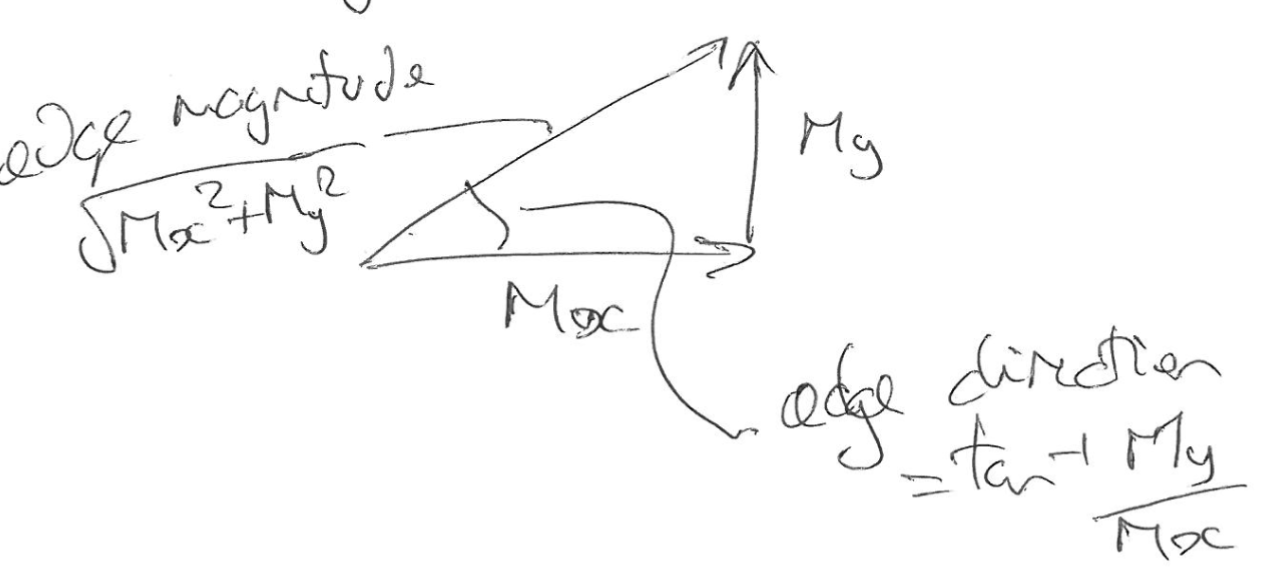 edge magnitude
√Mx²+My²
My
Mx
edge direction
= tan⁻¹ My
Mx